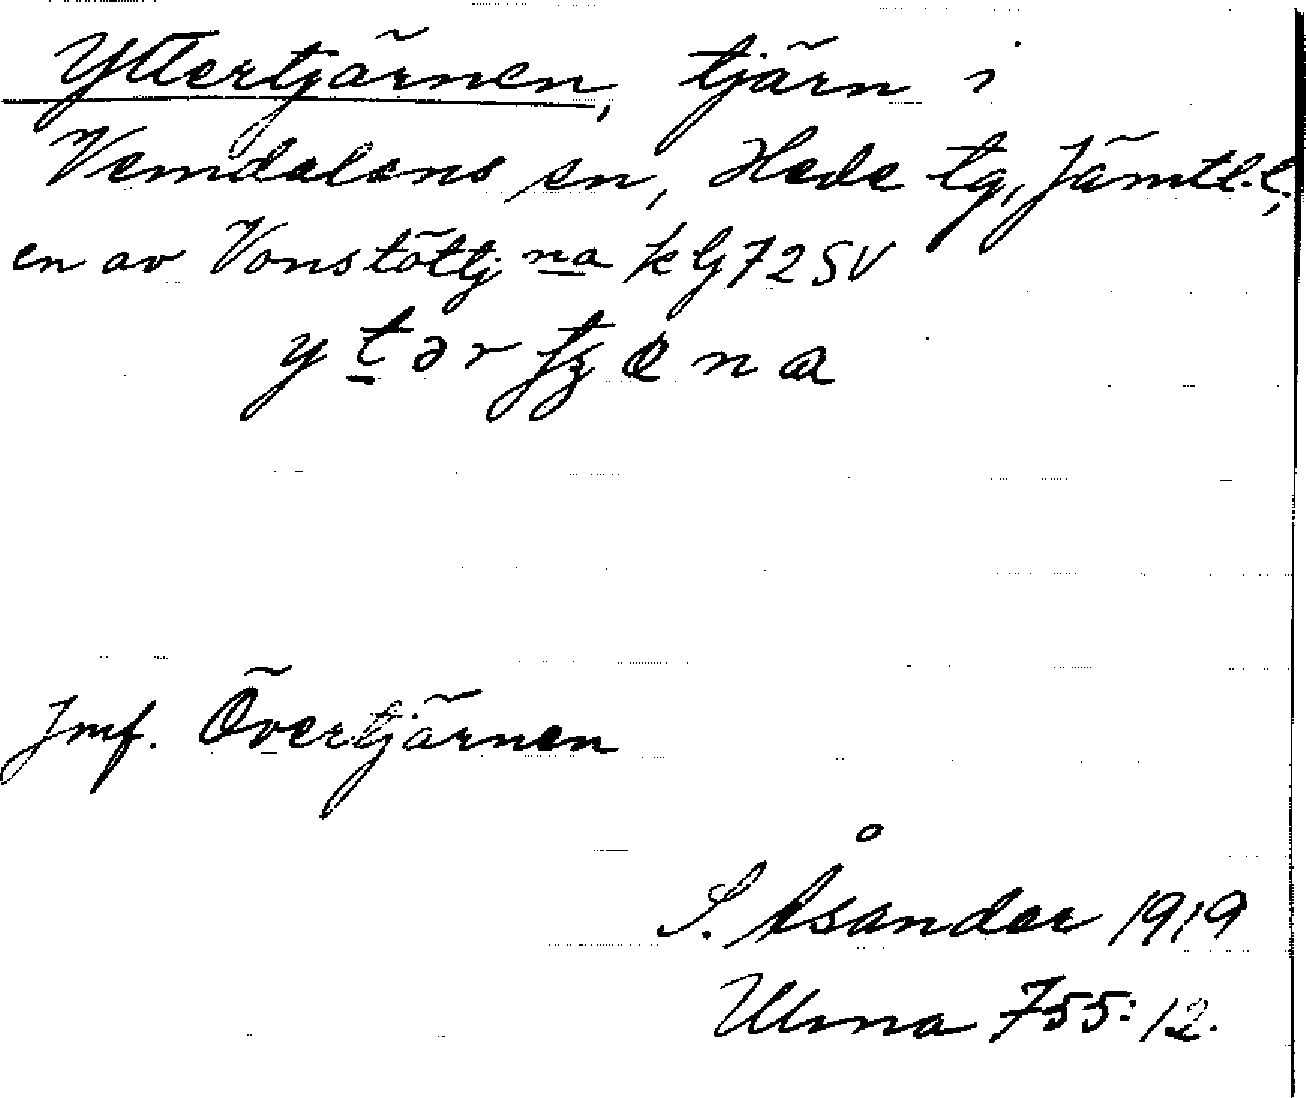 Yttertjärnen, tjärn i
Vemdalens sn, Hede tg, Jämtl. l.,
en av Vonstöttj:na k bj 72 SV
Jmf. Övertjärnen
S. Åsander 1919
Ulma 755:12.